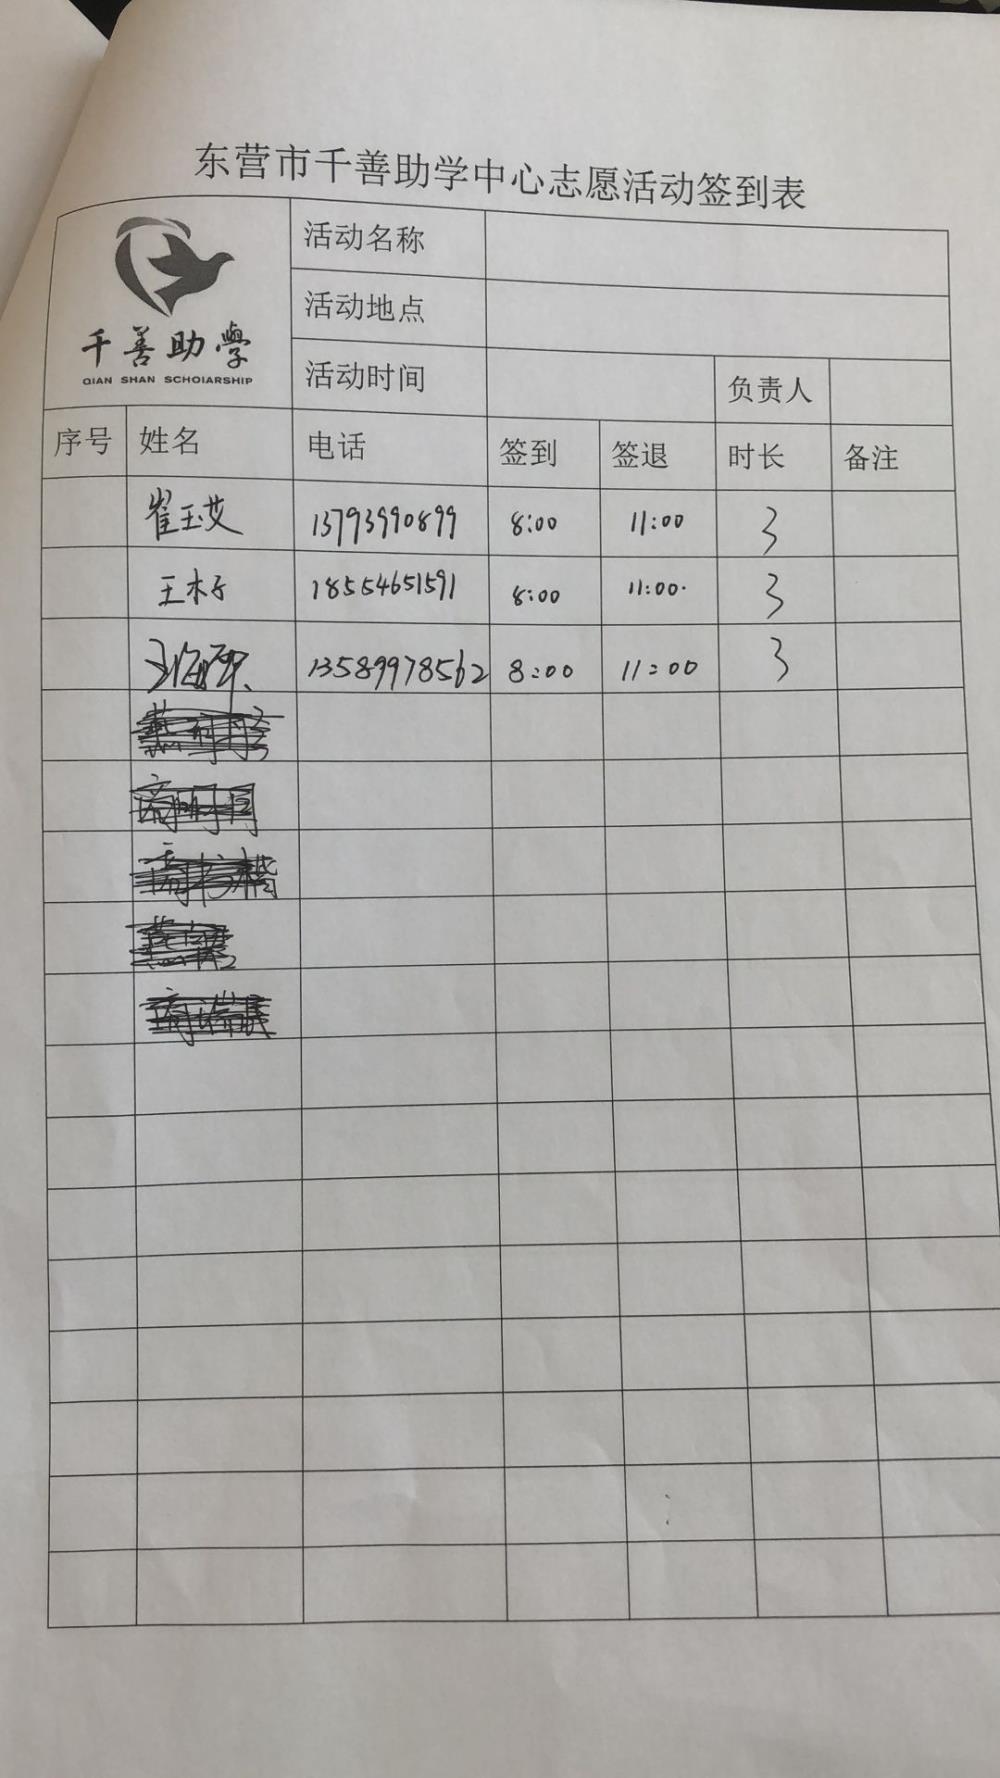 东营市千善助学中心志愿活动签到表
千善助學
QIAN SHAN SCHOIARSHIP
活动名称
活动地点
活动时间 负责人
序号 姓名 电话 签到 签退 时长 备注
崔玉艾 13793990899 8:00 11:00 3
王木子 18554651591 8:00 11:00. 3
13589978562 8:00 11:00 3